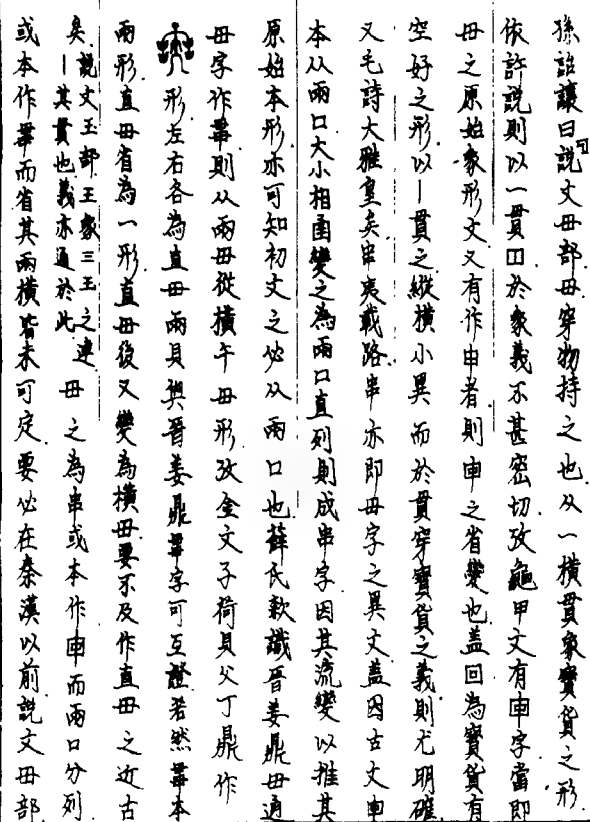 孫詒讓曰說文毌部毌穿物持之也从一橫貫象寶貨之形
依許說則以一貫囗於象義不甚密切攷龜甲文有申字當即
毌之原始象形文又有作申者則申之省變也蓋回為寶貨有
空好之形以丨貫之縱橫小異而於貫穿寶貨之義則尤明確
又毛詩大雅皇矣串夷載路串亦即毌字之異文蓋因古文申
本从兩口大小相圅變之為兩口直列則成串字因其流變以推其
原始本形亦可知初文之必从兩口也薛氏款識晉姜鼎毌通
毌字作𢆉則从兩毌從橫午毌形攷金文子荷貝父丁鼎作
形左右各為直毌兩貝與晉姜鼎字可互證若然本
兩形直毌省為一形直毌後又變為橫毌要不及作直毌之近古
矣說文玉部王象三玉之連丨其貫也義亦通於此毌之為串或本作而兩口分列
或本作而省其兩橫皆未可定要必在秦漢以前說文毌部